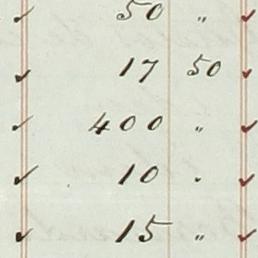 ✓ 50 „ ✓
✓ 17 50 ✓
✓ 400 „ ✓
✓ 10 . ✓
✓ 15 „ ✓